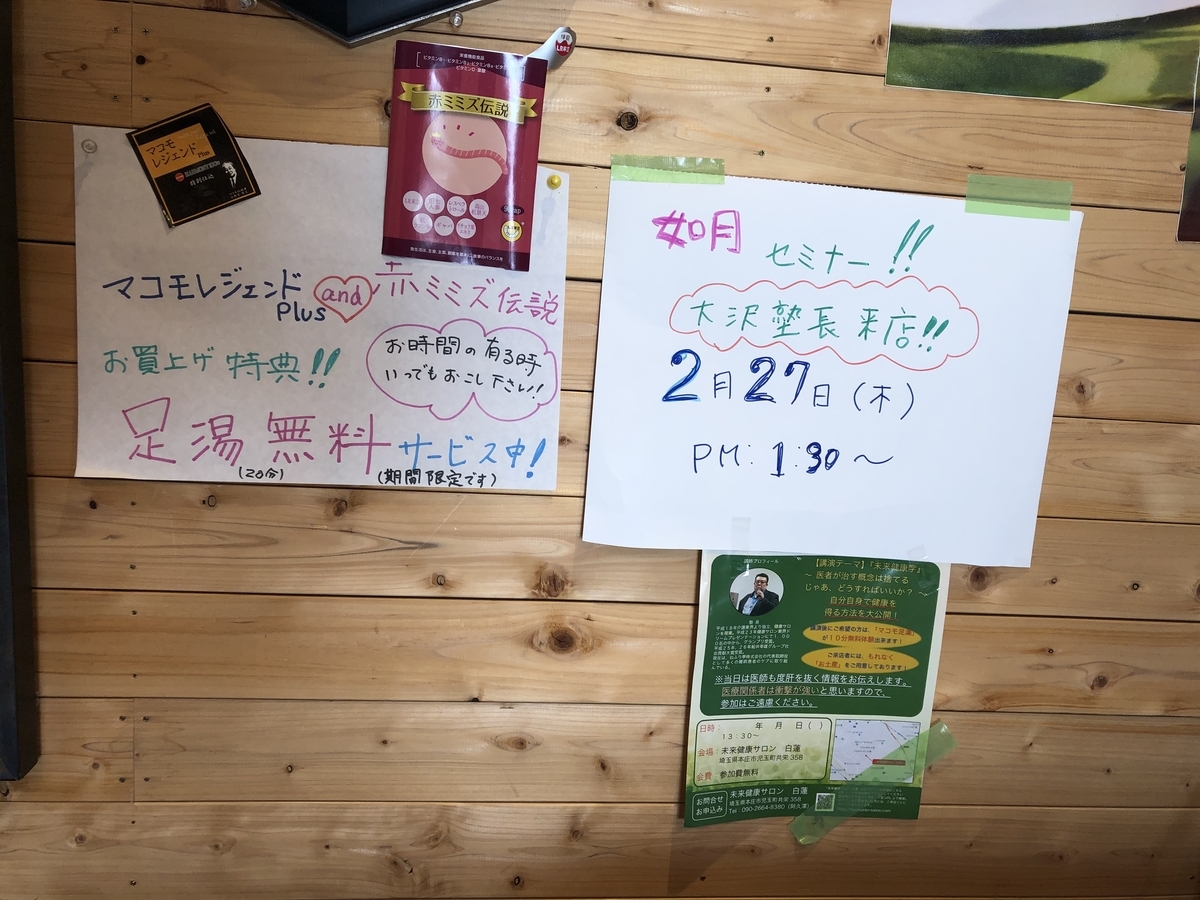 マコモ
レジェンド Plus
特別仕込
栄養機能食品
赤ミミズ伝説
マコモレジェンド
Plus
and
赤ミミズ伝説
お買上げ 特典!!
お時間の有る時
いつでもおこし下さい!
足湯 無料 サービス中!
(20分)
(期間限定です)
如月
セミナー!!
大沢塾長 来店!!
2月27日(木)
PM: 1:30〜
講師プロフィール
【講演テーマ】「未来健康学」
〜 医者が治す概念は捨てる
じゃあ、どうすればいいか? 〜
自分自身で健康を
得る方法を大公開!
講演後にご希望の方は、「マコモ足湯」
が10分無料体験出来ます!
ご来店者には、もれなく
「お土産」をご用意しております!
※当日は医師も度肝を抜く情報をお伝えします。
医療関係者は衝撃が強いと思いますので、
参加はご遠慮ください。
日時: 年 月 日( )
13:30〜
会場: 未来健康サロン 白蓮
埼玉県本庄市児玉町共栄358
会費 参加費無料
お問合せ
お申込み
未来健康サロン 白蓮
埼玉県本庄市児玉町共栄 358
Tel:090-2664-8380